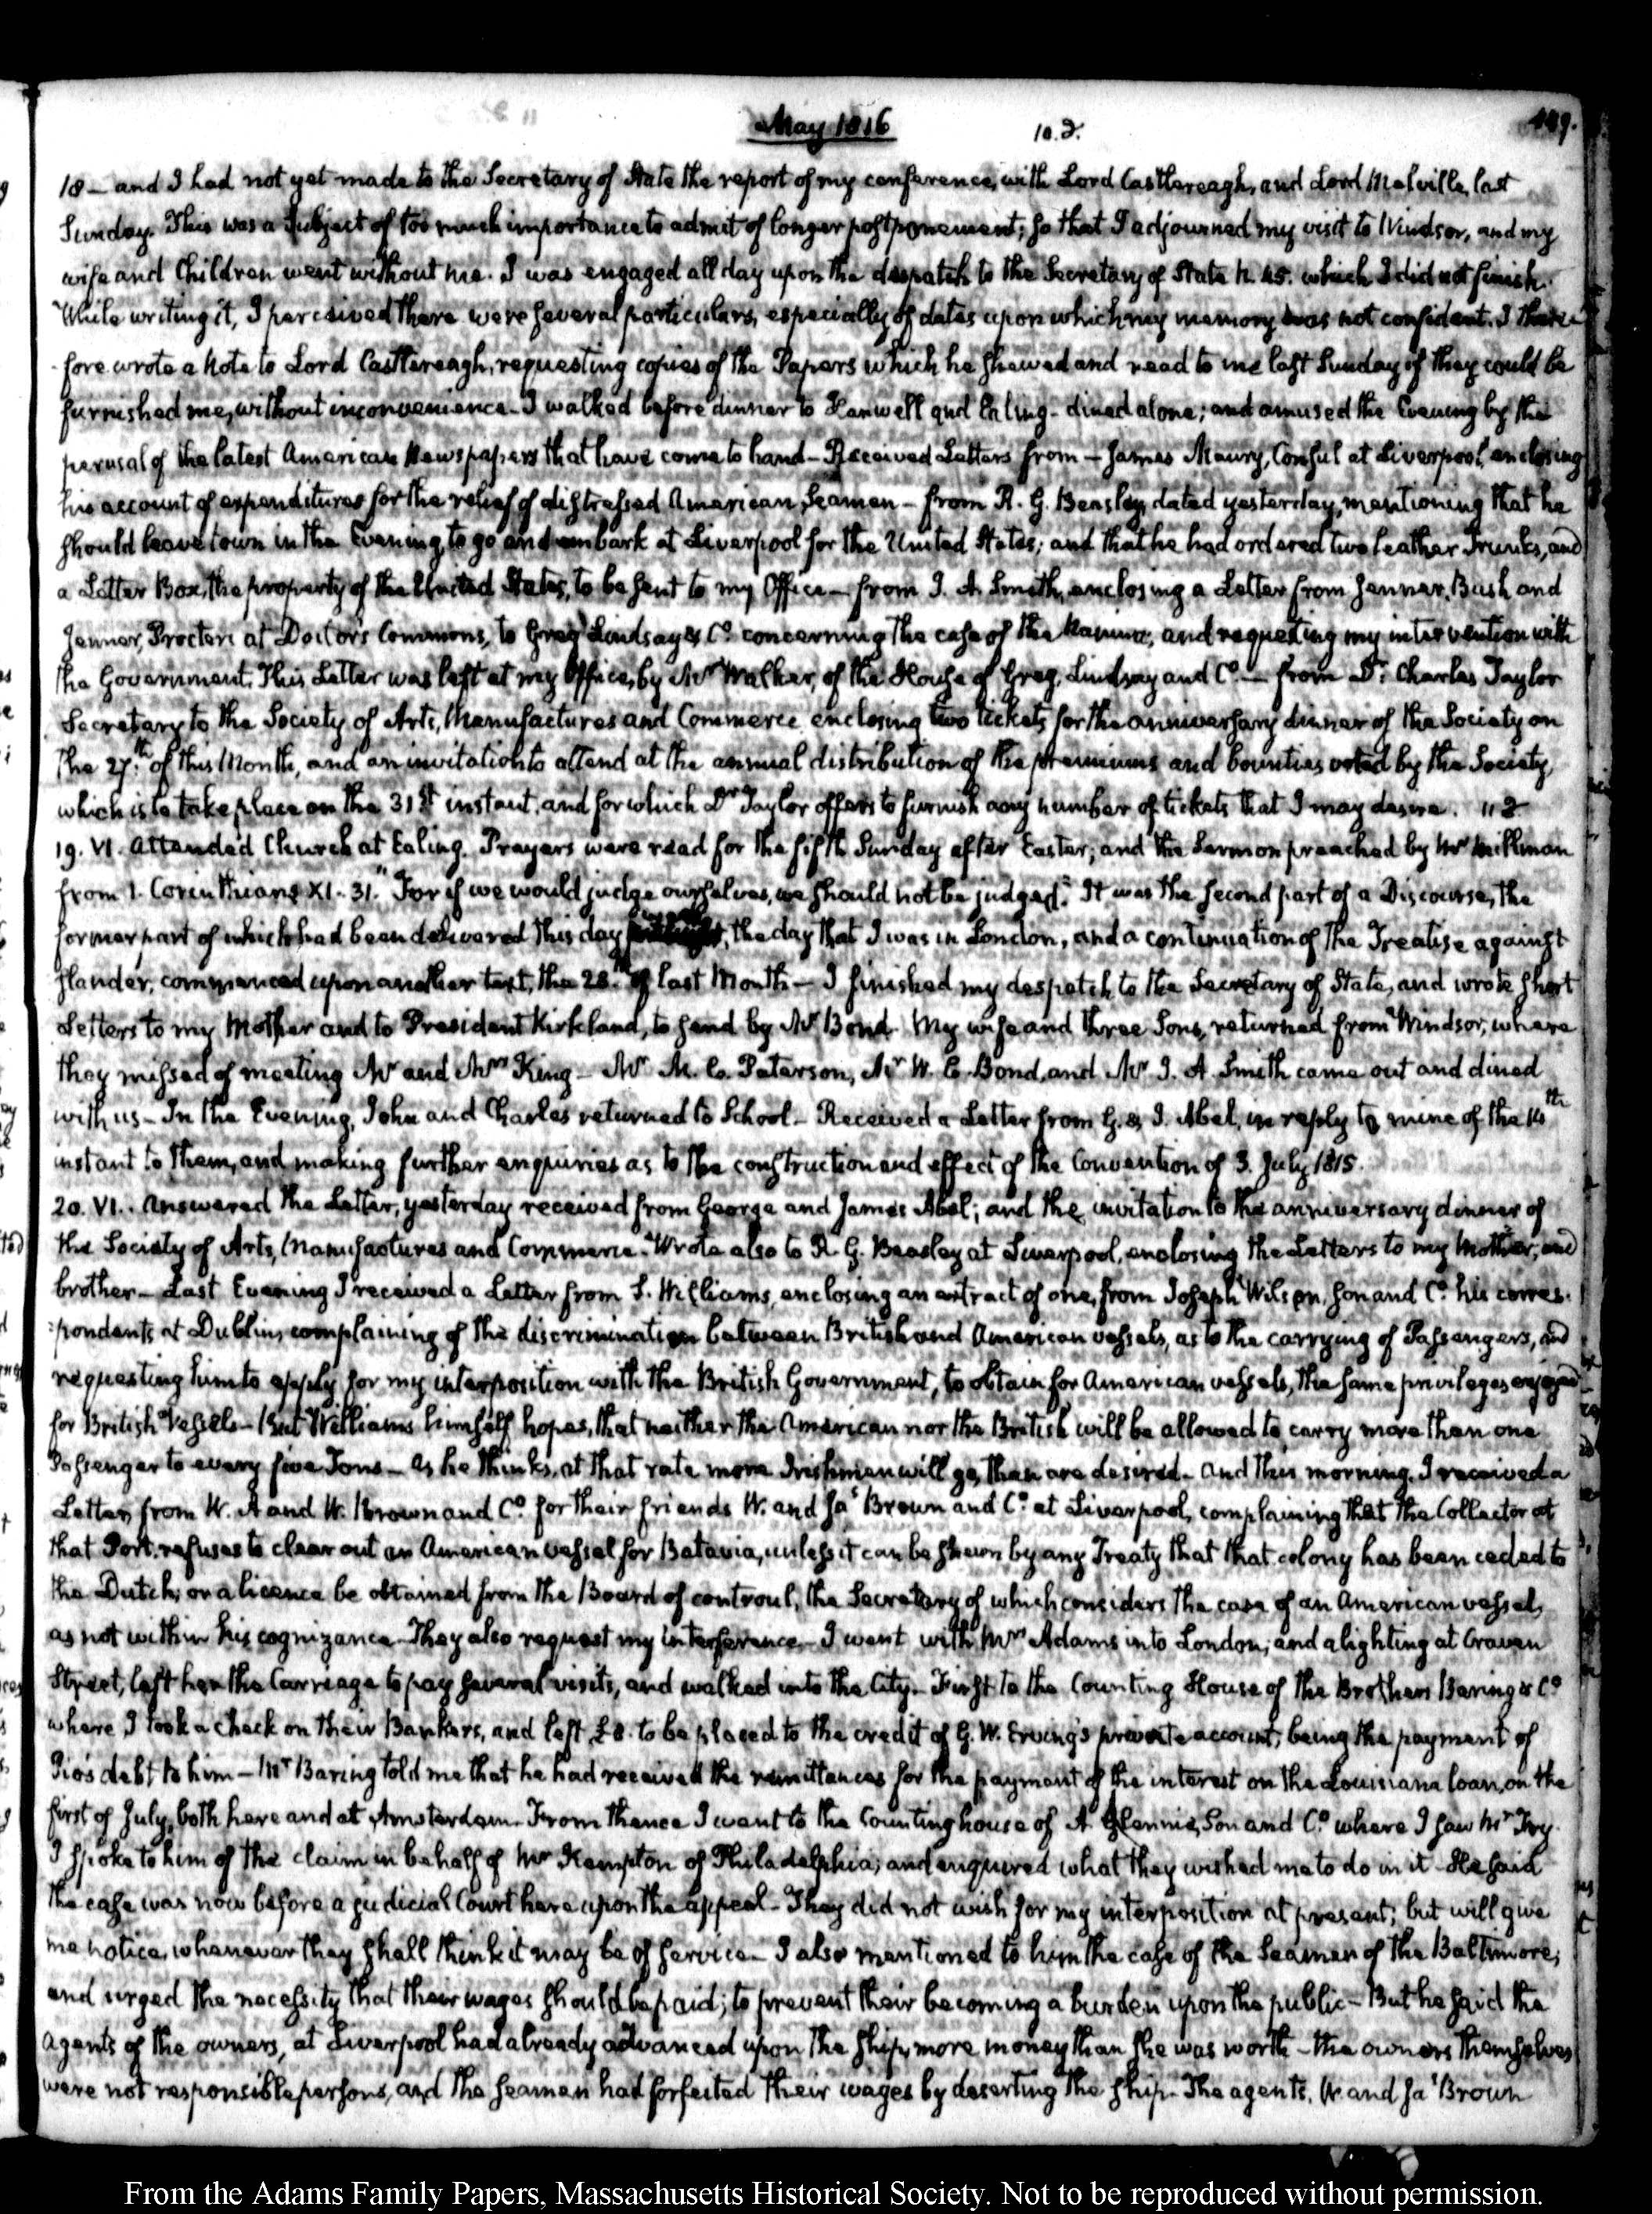 May 1816
10.2.
449.
18 – and I had not yet made to the Secretary of State the report of my conference, with Lord Castlereagh, and Lord Melville, last
Sunday. This was a Subject of too much importance to admit of longer postponement; so that I adjourned my visit to Windsor, and my
wife and Children went without me. I was engaged all day upon the despatch to the Secretary of State N. 45. which I did not finish.
While writing it, I perceived there were several particulars, especially of dates upon which my memory was not confident. I there-
fore wrote a Note to Lord Castlereagh, requesting copies of the Papers which he shewed and read to me last Sunday if they could be
furnished me, without inconvenience – I walked before dinner to Hanwell and Ealing – dined alone; and amused the Evening by the
perusal of the latest American Newspapers that have come to hand – Received Letters from – James Maury, Consul at Liverpool, enclosing
his account of expenditures for the relief of distressed American Seamen – from R. G. Beasley, dated yesterday, mentioning that he
should leave town in the Evening, to go and embark at Liverpool for the United States; and that he had ordered two leather Trunks, and
a Letter Box, the property of the United States, to be sent to my Office – from J. A. Smith, enclosing a Letter from Jenner, Bush and
Jenner, Proctors at Doctor's Commons, to Greg Lindsay & Co. concerning the case of the Nanina, and requesting my intervention with
the Government. This Letter was left at my Office, by Mr Walker, of the House of Greg, Lindsay and Co. – from Dr. Charles Taylor
Secretary to the Society of Arts, Manufactures and Commerce enclosing two tickets for the anniversary dinner of the Society on
the 27th of this Month, and an invitation to attend at the annual distribution of the premiums and bounties voted by the Society,
which is to take place on the 31st instant, and for which Dr Taylor offers to furnish any number of tickets that I may desire. 11 2
19. VI. Attended Church at Ealing. Prayers were read for the fifth Sunday after Easter; and the Sermon preached by Mr Millman
from 1. Corinthians XI. 31. "For if we would judge ourselves, we should not be judged." It was the second part of a Discourse, the
former part of which had been delivered this day, the day that I was in London, and a continuation of the Treatise against
slander, commenced upon another text, the 28th of last Month – I finished my despatch to the Secretary of State, and wrote short
Letters to my Mother and to President Kirkland, to send by Mr Bond. My wife and three Sons, returned from Windsor, where
they missed of meeting Mr and Mrs King – Mr M. C. Paterson, Mr W. C. Bond, and Mr J. A. Smith came out and dined
with us – In the Evening, John and Charles returned to School – Received a Letter from G. & J. Abel, in reply to mine of the 16th
instant to them, and making further enquiries as to the construction and effect of the Convention of 3. July 1815.
20. VI. Answered the Letter, yesterday received from George and James Abel; and the invitation to the anniversary dinner of
the Society of Arts, Manufactures and Commerce. Wrote also to R. G. Beasley at Liverpool, enclosing the Letters to my Mother, and
brother – Last Evening I received a Letter from S. Williams, enclosing an extract of one, from Joseph Wilson, Son and Co. his corres-
pondents at Dublin, complaining of the discrimination between British and American vessels, as to the carrying of Passengers, and
requesting him to apply for my interposition with the British Government, to obtain for American vessels, the same privileges enjoyed
for British Vessels – But Williams himself hopes, that neither the American nor the British will be allowed to carry more than one
Passenger to every five Tons – as he thinks, at that rate more Irishmen will go, than are desired – And this morning, I received a
Letter from W. A and W. Brown and Co. for their friends W. and Jas Brown and Co. at Liverpool, complaining that the Collector at
that Port, refuses to clear out an American vessel for Batavia, unless it can be shewn by any Treaty that that colony has been ceded to
the Dutch; or a licence be obtained from the Board of controul, the Secretary of which considers the case of an American vessel,
as not within his cognizance. They also request my interference – I went with Mrs Adams into London; and alighting at Craven
Street, left her the Carriage to pay several visits, and walked into the City – First to the Counting House of the Brothers Baring & Co.
where I took a check on their Bankers, and left £8. to be placed to the credit of G. W. Erving's private account; being the payment of
Pio's debt to him – Mr Baring told me that he had received the remittances for the payment of the interest on the Louisiana loan, on the
first of July, both here and at Amsterdam. From thence I went to the Counting house of A. Glennie, Son and Co. where I saw Mr Fry.
I spoke to him of the claim in behalf of Mr Kempton of Philadelphia; and enquired what they wished me to do in it – He said
the case was now before a judicial Court here upon the appeal – They did not wish for my interposition at present; but will give
me notice, whenever they shall think it may be of service – I also mentioned to him the case of the Seamen of the Baltimore,
and urged the necessity that their wages should be paid; to prevent their becoming a burden upon the public – But he said the
agents of the owners, at Liverpool had already advanced upon the Ship, more money than she was worth – the owners themselves
were not responsible persons, and the seamen had forfeited their wages by deserting the ship. The agents, W. and Jas Brown
From the Adams Family Papers, Massachusetts Historical Society. Not to be reproduced without permission.